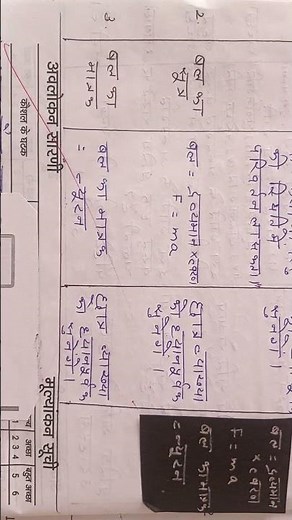 परिवर्तन
सुनेंगे।
2.
बल का
सूत्र
बल = द्रव्यमान × त्वरण
F = ma
छात्र व्याख्या
को ध्यानपूर्वक
सुनेंगे।
बल = द्रव्यमान
× त्वरण
F = ma
बल का मात्रक
= न्यूटन
3.
बल का
मात्रक
बल का मात्रक
= न्यूटन
छात्र व्याख्या
को ध्यानपूर्वक
सुनेंगे।
अवलोकन सारणी
मूल्यांकन सूची
कौशल के घटक
अच्छा बहुत अच्छा
1 2 3 4 5 6